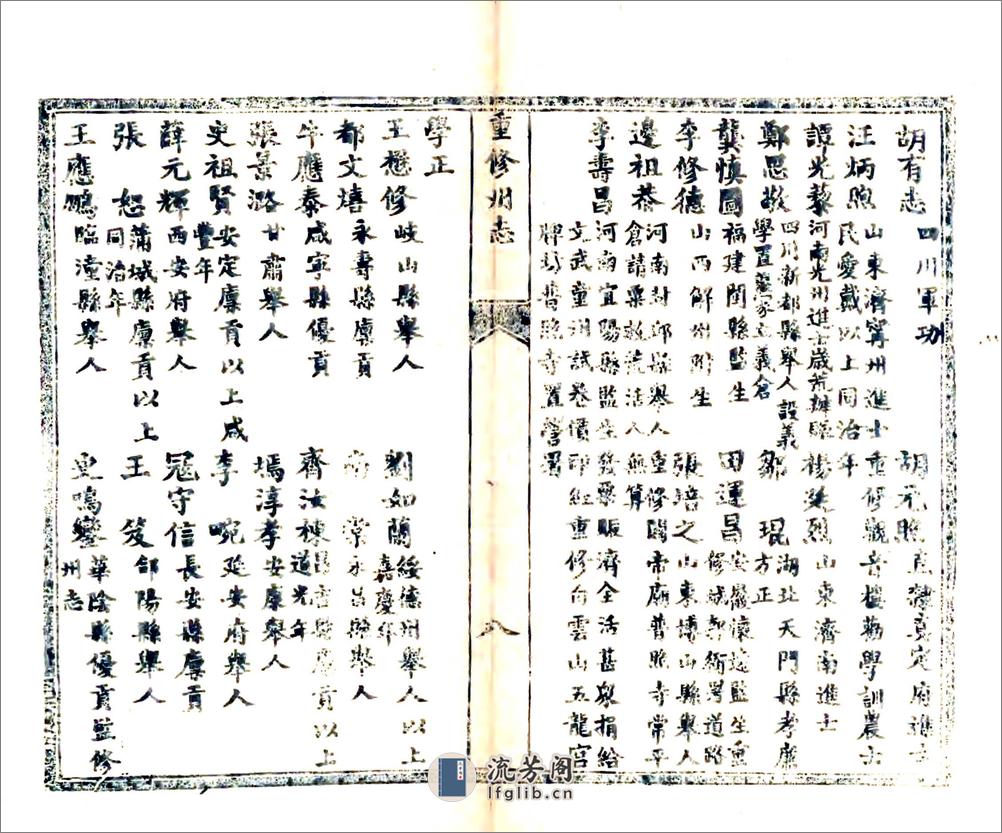 胡有志 四川軍功 胡元煦 直隸真定府進士
汪炳煦 山東濟寧州進士重修觀音樓勸學訓農士民愛戴以上同治年
譚光藜 河南光州進士歲荒辦賑 楊廷烈 山東濟南進士
鄭思敬 四川新都縣舉人設義學置蒙家立義倉 鄒琨 湖北天門縣孝廉方正
龔慎圖 福建閩縣監生 田運昌 安徽懷遠監生重修咸新衙署道路
李修德 山西解州附生 張培之 山東博山縣舉人
邊祖恭 河南封邱縣舉人重修關帝廟普照寺常平倉請粟救荒活人無算
李壽昌 河南宜陽縣監生發粟賑濟全活甚眾捐給文武童州試卷價印經重修白雲山五龍宮牌坊普照寺置營署
重修州志
八
學正
王懋修 岐山縣舉人 劉如蘭 綏德州舉人以上嘉慶年
都文禧 永壽縣廩貢 常 永吉縣舉人
牛應泰 咸寧縣優貢 齊汝楝 縣廩貢以上道光年
張景潞 甘肅舉人 淳孝 安康舉人
史祖賢 安定廩貢以上咸豐年 李 延安府舉人
薛元輝 西安府舉人 寇守信 長安縣廩貢
張恕 蒲城縣廩貢以上同治年 王笈 郃陽縣舉人
王應鵬 臨潼縣舉人 史鳴鑾 華陰縣優貢監修州志
流芳阁
lfglib.cn